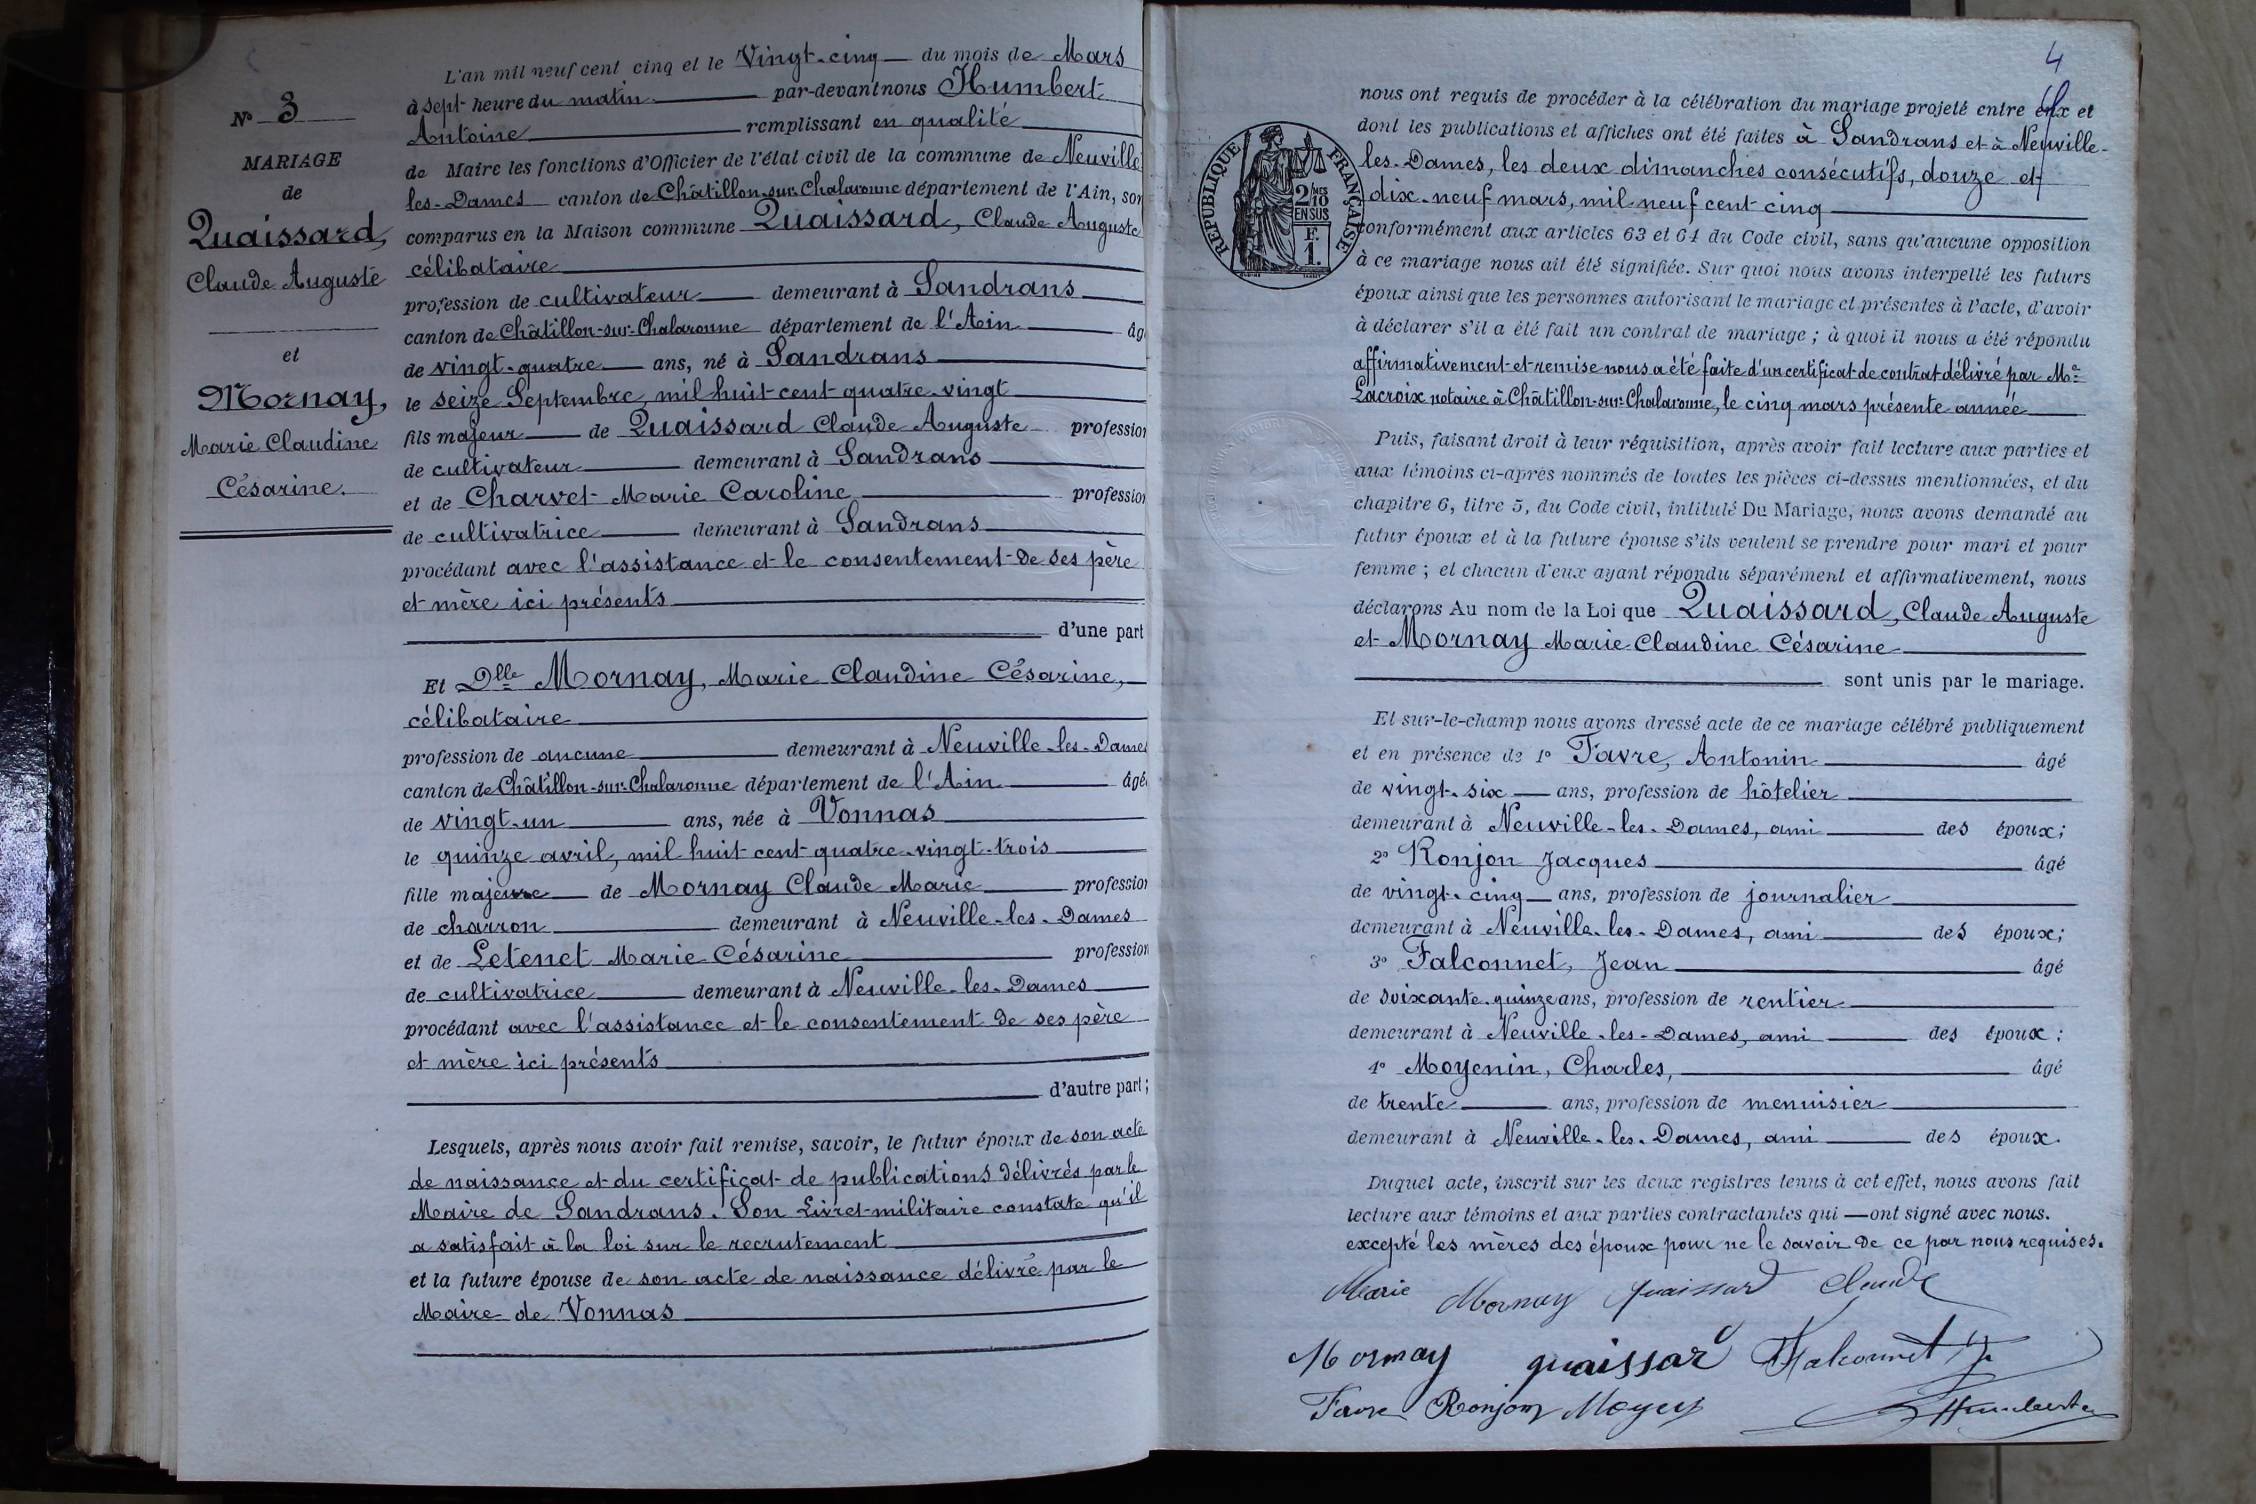 N° 3
MARIAGE
de
Quaissard,
Claude Auguste
et
Mornay,
Marie Claudine
Césarine.
L'an mil neuf cent cinq et le Vingt-cinq du mois de Mars
à sept heure du matin par-devant nous Humbert
Antoine remplissant en qualité
de Maire les fonctions d'Officier de l'état civil de la commune de Neuville
les-Dames canton de Châtillon-sur-Chalaronne département de l'Ain, son
comparus en la Maison commune Quaissard, Claude Auguste
célibataire
profession de cultivateur demeurant à Sandrans
canton de Châtillon-sur-Chalaronne département de l'Ain âg
de vingt-quatre ans, né à Sandrans
le seize Septembre, mil huit cent quatre-vingt
fils majeur de Quaissard Claude Auguste profession
de cultivateur demeurant à Sandrans
et de Charvet Marie Caroline profession
de cultivatrice demeurant à Sandrans
procédant avec l'assistance et le consentement de ses père
et mère ici présents
d'une part
Et Dlle Mornay, Marie Claudine Césarine,
célibataire
profession de aucune demeurant à Neuville-les-Dames
canton de Châtillon-sur-Chalaronne département de l'Ain âgé
de vingt-un ans, née à Vonnas
le quinze avril, mil huit cent quatre-vingt-trois
fille majeure de Mornay Claude Marie profession
de charron demeurant à Neuville-les-Dames
et de Letenet Marie Césarine profession
de cultivatrice demeurant à Neuville-les-Dames
procédant avec l'assistance et le consentement de ses père
et mère ici présents
d'autre part;
Lesquels, après nous avoir fait remise, savoir, le futur époux de son acte
de naissance et du certificat de publications délivrés par le
Maire de Sandrans. Son Livret militaire constate qu'il
a satisfait à la loi sur le recrutement
et la future épouse de son acte de naissance délivré par le
Maire de Vonnas
4
RÉPUBLIQUE FRANÇAISE
2/10 MES
EN SUS
F.
1.
nous ont requis de procéder à la célébration du mariage projeté entre eux et
dont les publications et affiches ont été faites à Sandrans et à Neuville-
les-Dames, les deux dimanches consécutifs, douze et
dix-neuf mars, mil neuf cent cinq
conformément aux articles 63 et 64 du Code civil, sans qu'aucune opposition
à ce mariage nous ait été signifiée. Sur quoi nous avons interpellé les futurs
époux ainsi que les personnes autorisant le mariage et présentes à l'acte, d'avoir
à déclarer s'il a été fait un contrat de mariage; à quoi il nous a été répondu
affirmativement et remise nous a été faite d'un certificat de contrat délivré par Me
Lacroix notaire à Châtillon-sur-Chalaronne, le cinq mars présente année
Puis, faisant droit à leur réquisition, après avoir fait lecture aux parties et
aux témoins ci-après nommés de toutes les pièces ci-dessus mentionnées, et du
chapitre 6, titre 5, du Code civil, intitulé Du Mariage, nous avons demandé au
futur époux et à la future épouse s'ils veulent se prendre pour mari et pour
femme; et chacun d'eux ayant répondu séparément et affirmativement, nous
déclarons Au nom de la Loi que Quaissard, Claude Auguste
et Mornay Marie Claudine Césarine
sont unis par le mariage.
Et sur-le-champ nous avons dressé acte de ce mariage célébré publiquement
et en présence de 1° Favre, Antonin âgé
de vingt-six ans, profession de hôtelier
demeurant à Neuville-les-Dames, ami des époux;
2° Ronjon Jacques âgé
de vingt-cinq ans, profession de journalier
demeurant à Neuville-les-Dames, ami des époux;
3° Falconnet, Jean âgé
de soixante-quinze ans, profession de rentier
demeurant à Neuville-les-Dames, ami des époux;
4° Moyenin, Charles, âgé
de trente ans, profession de menuisier
demeurant à Neuville-les-Dames, ami des époux.
Duquel acte, inscrit sur les deux registres tenus à cet effet, nous avons fait
lecture aux témoins et aux parties contractantes qui ont signé avec nous.
excepté les mères des époux pour ne le savoir de ce par nous requises.
Marie Mornay quaissard Claude
Mornay quaissard Falconnet
Favre Ronjon Humbert